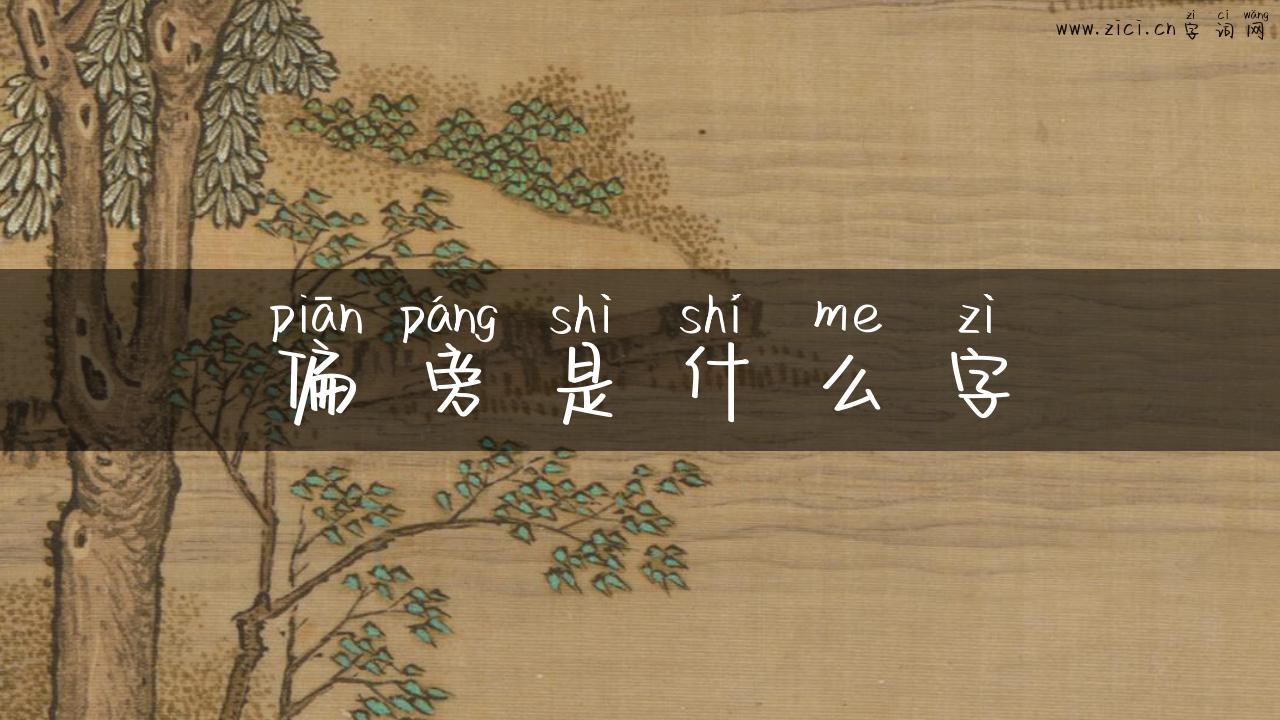 zì cí wǎng
www.zici.cn 字词网
piān páng shì shí me zì
偏旁是什么字